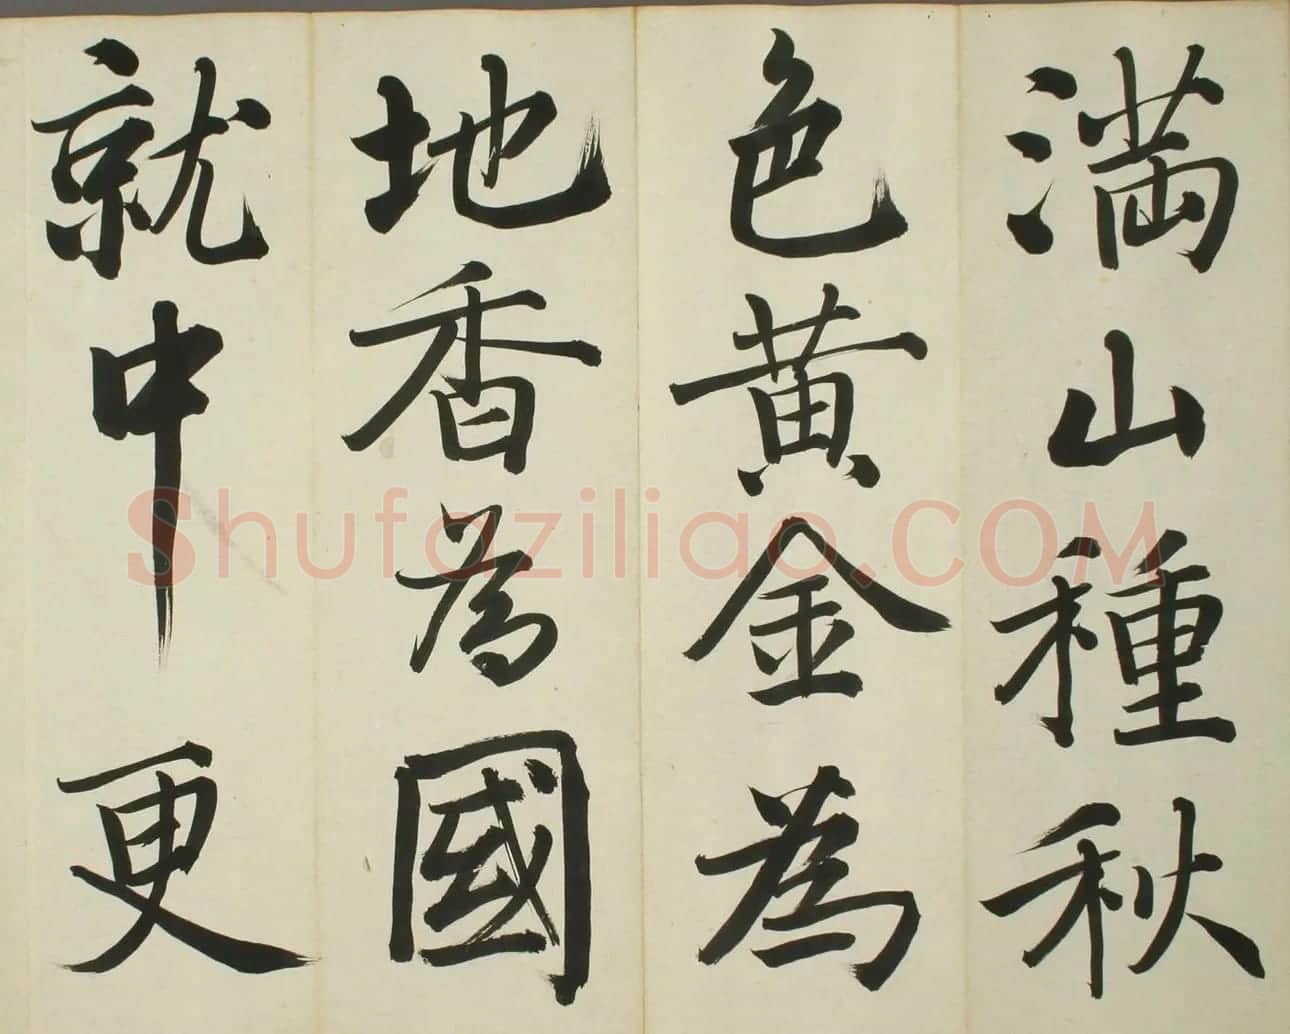 滿山種秋
色黃金為
地香為國
就中更
Shufaziliao.COM